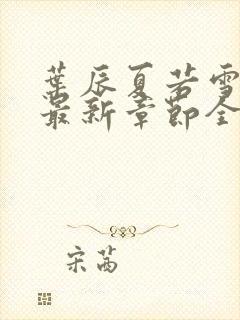 葉辰夏若雪
最新章節全
宋茜